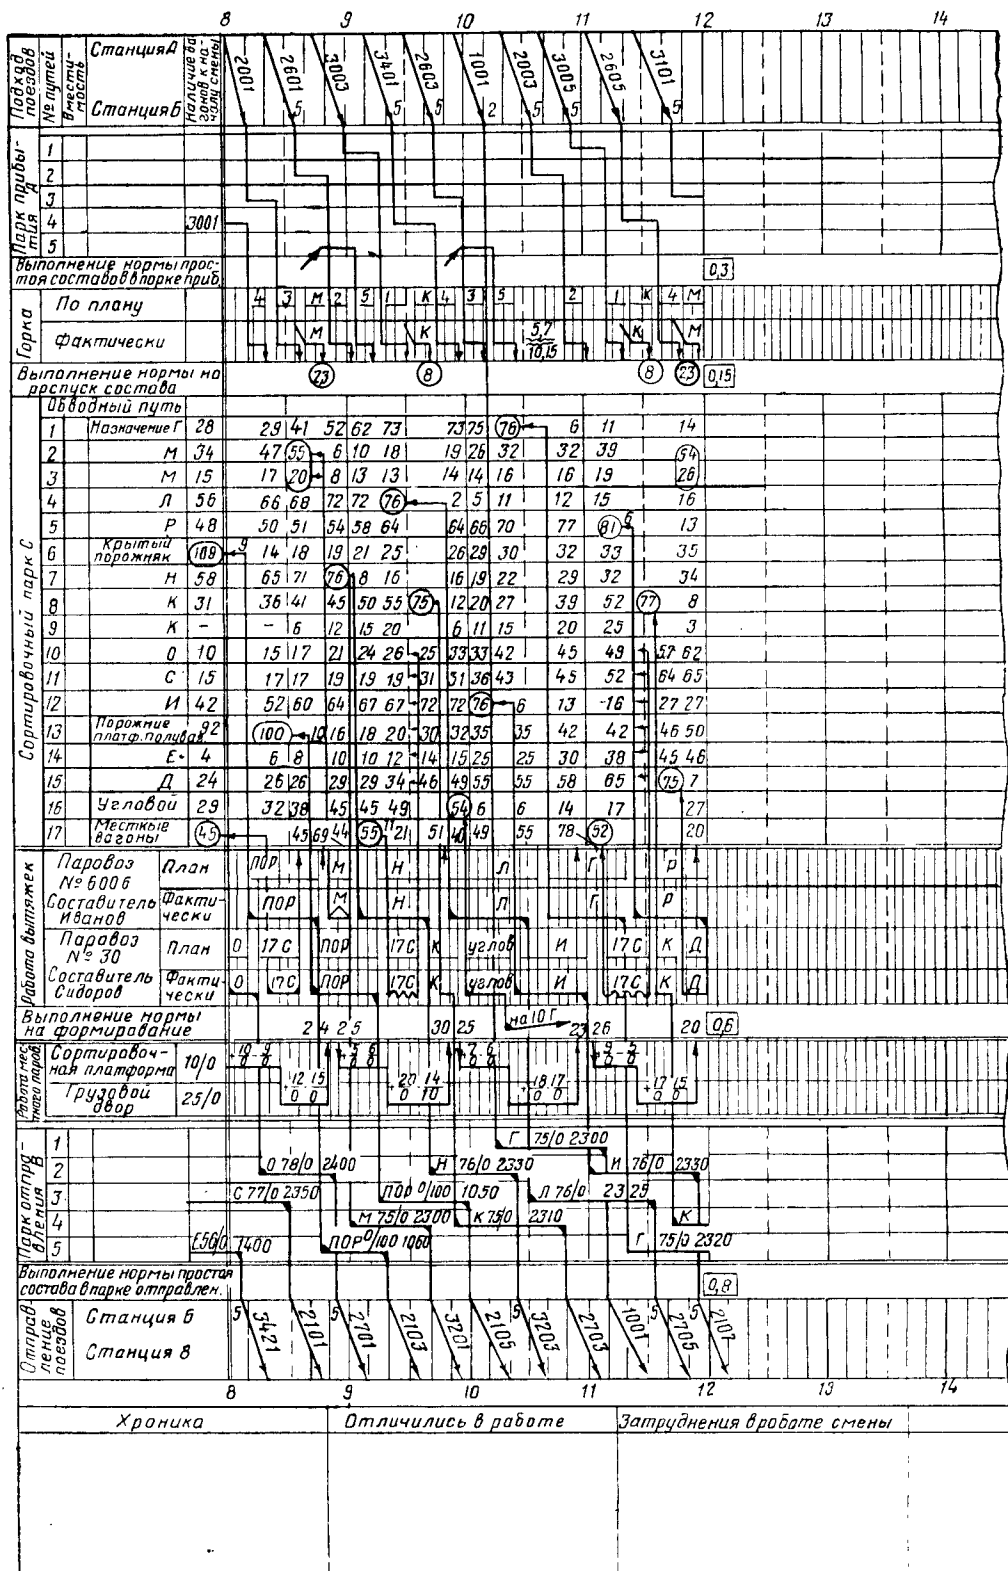 8 9 10 11 12 13 14
Подход поездов
№ путей
Вместимость
Станция А
Станция Б
Наличие вагонов к началу смены
2001 2601 3003 3401 2603 1001 2003 3005 2605 3101
5 5 5 2 5 5 5
Парк прибытия А
1
2
3
4 3001
5
Выполнение нормы простоя составов в парке приб. 0,3
Горка
По плану 4 3 М 2 5 1 К 4 3 5 2 1 К 4 М
Фактически М К 5,7 10,15 К М
23 8 8 23
Выполнение нормы на роспуск состава 0,15
Сортировочный парк С
Обводный путь
1 Назначение Г 28 29 41 52 62 73 73 75 76 6 11 14
2 М 34 47 55 6 10 18 19 26 32 32 39 54
3 М 15 17 20 8 13 13 14 14 16 16 19 26
4 Л 56 66 68 72 72 76 2 5 11 12 15 16
5 Р 48 50 51 54 58 64 64 66 70 77 81 6 13
6 Крытый порожняк 109 9 14 18 19 21 25 26 29 30 32 33 35
7 Н 58 65 71 76 8 16 16 19 22 29 32 34
8 К 31 36 41 45 50 55 75 12 20 27 39 52 77 8
9 К - - 6 12 15 20 6 11 15 20 25 3
10 О 10 15 17 21 24 26 25 33 33 42 45 49 57 62
11 С 15 17 17 19 19 19 31 31 36 43 45 52 64 65
12 И 42 52 60 64 67 67 72 72 76 6 13 16 27 27
13 Порожние платф. полуваг. 92 100 10 16 18 20 30 32 35 35 42 42 46 50
14 Е 4 6 8 10 10 12 14 15 25 25 30 38 45 46
15 Д 24 26 26 29 29 34 46 49 55 55 58 65 75 7
16 Угловой 29 32 38 45 45 49 54 6 6 14 17 27
17 Местные вагоны 45 45 69 44 55 21 51 40 49 55 78 52 20
Работа вытяжек
Паровоз № 6006 План ПОР М Н Л Г Р
Составитель Иванов Фактически ПОР М Н Л Г Р
Паровоз № 30 План О 17 С ПОР 17 С К углов И 17 С К Д
Составитель Сидоров Фактически О 17 С ПОР 17 С К углов И 17 С К Д
Выполнение нормы на формирование 24 25 30 25 на 10 Г 23 26 20 0,6
Работа местного паров.
Сортировочная платформа 10/0
Грузовой двор 25/0
Парк отправления В
1 Г 75/0 2300
2 О 78/0 2400 Н 76/0 2330 И 76/0 2330
3 С 77/0 2350 ПОР 0/100 1050 Л 76/0 2325
4 М 75/0 2300 К 75/0 2310 К
5 Е50/0 1400 ПОР 0/100 1060 Г 75/0 2320
Выполнение нормы простоя состава в парке отправлен. 0,8
Отправление поездов
Станция Б
Станция В
5 3421 2101 5 2701 2103 3201 2105 5 3203 2703 1001 5 2705 5 2107
8 9 10 11 12 13 14
Хроника Отличились в работе Затруднения в работе смены